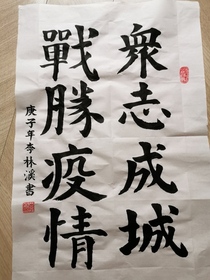 眾志成城
戰勝疫情
庚子年李林溪書